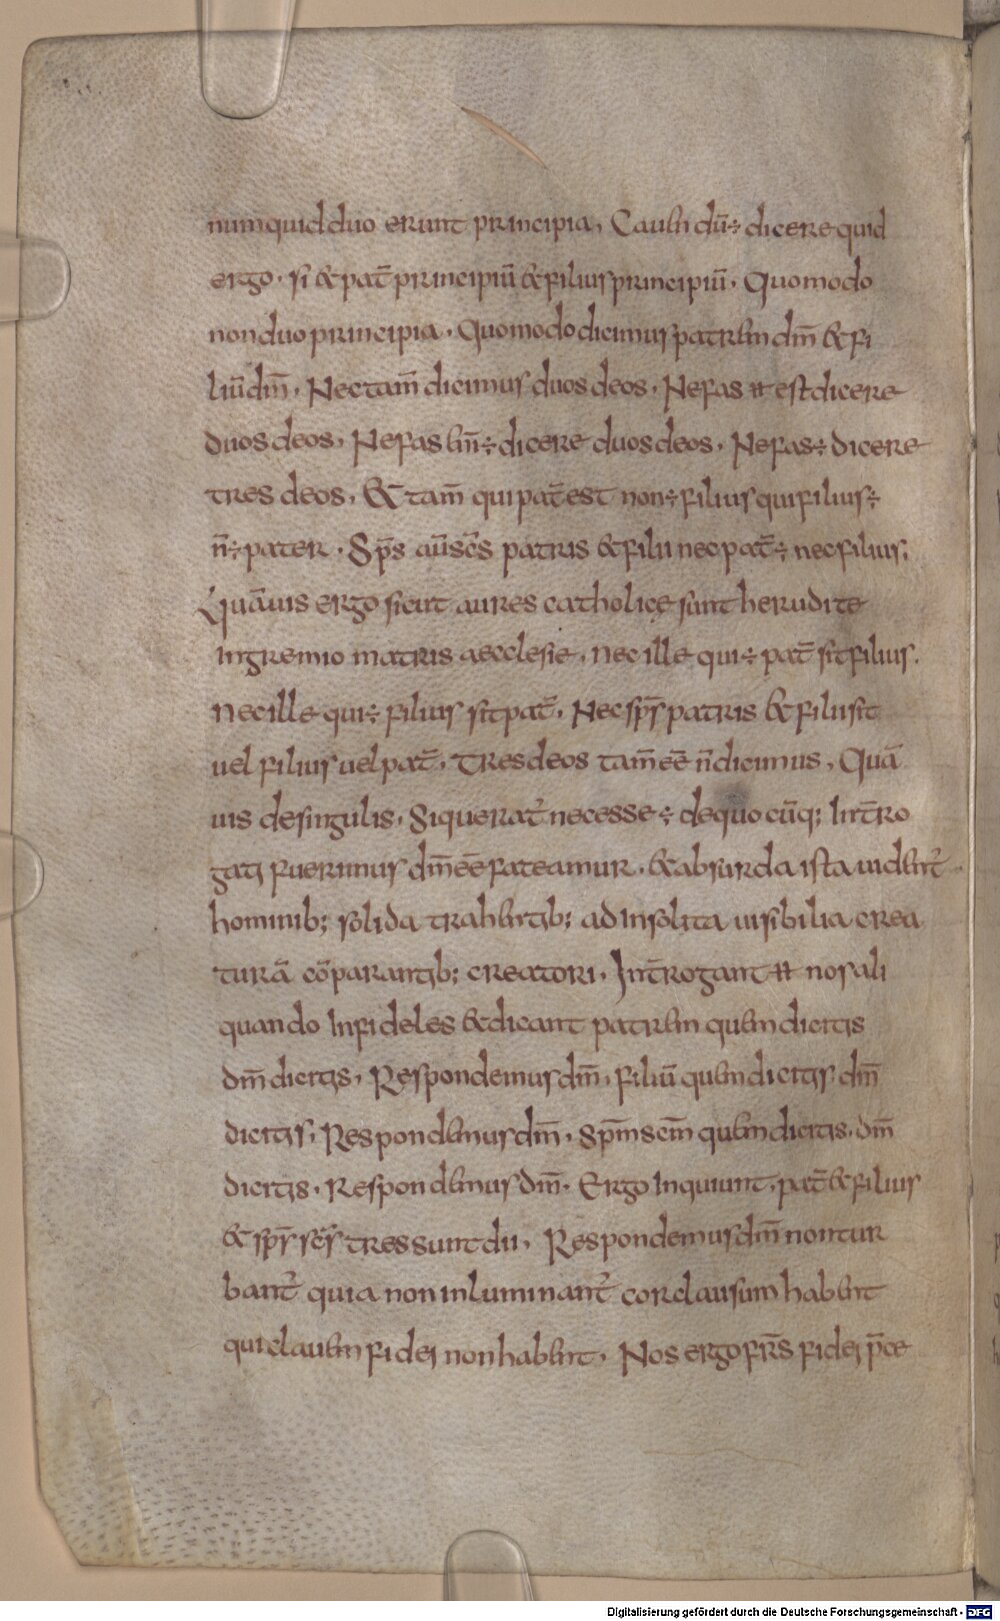 numquid duo erunt principia, Cauen dū÷ dicere quid
ergo. si & pat̄ principiū & filius principiū. Quomodo
non duo principia. Quomodo dicimus patrem dm̄ & fi
liū dm̄, Nec tam̄ dicimus duos deos. Nefas ħ est dicere
duos deos, Nefas ÷ dicere duos deos, Nefas ÷ dicere
tres deos, & tam̄ qui pat̄ est non ÷ filius qui filius ÷
n̄ ÷ pater. Sp̄s aū sc̄s patris & filii nec pat̄ ÷ nec filius;
Quāuis ergo sicut aures catholicę sunt herudite
In gremio matris aecclesie, nec ille qui ÷ pat̄ sit filius.
Nec ille qui ÷ filius sit pat̄, Nec sp̄s patris & filii sit
uel filius uel pat̄, Tres deos tam̄ eē n̄ dicimus, Quā
uis de singulis, Si querat̄ necesse ÷ de quo cūq; Int̄ro
gati fuerimus dm̄ eē fateamur. & absurda ista uident̄
hominib; solida trahentib; ad Insolita uisibilia crea
turā cōparantib; creatori, Int̄rogant ħ nos ali
quando Infideles & dicant patrem quem dicitis
dm̄ dicitis, Respondemus dm̄, filiū quem dicitis dm̄
dicitis, Respondemus dm̄, Sp̄m sc̄m quem dicitis, dm̄
dicitis, Respondemus dm̄. Ergo Inquiunt, pat̄ & filius
& sp̄s sc̄s tres sunt dii, Respondemus dm̄ non tur
bant̄ quia non inluminant̄ cor clausum habent
qui clauem fidei non habent, Nos ergo fr̄s fidei p̄ce
Digitalisierung gefördert durch die Deutsche Forschungsgemeinschaft - DFG